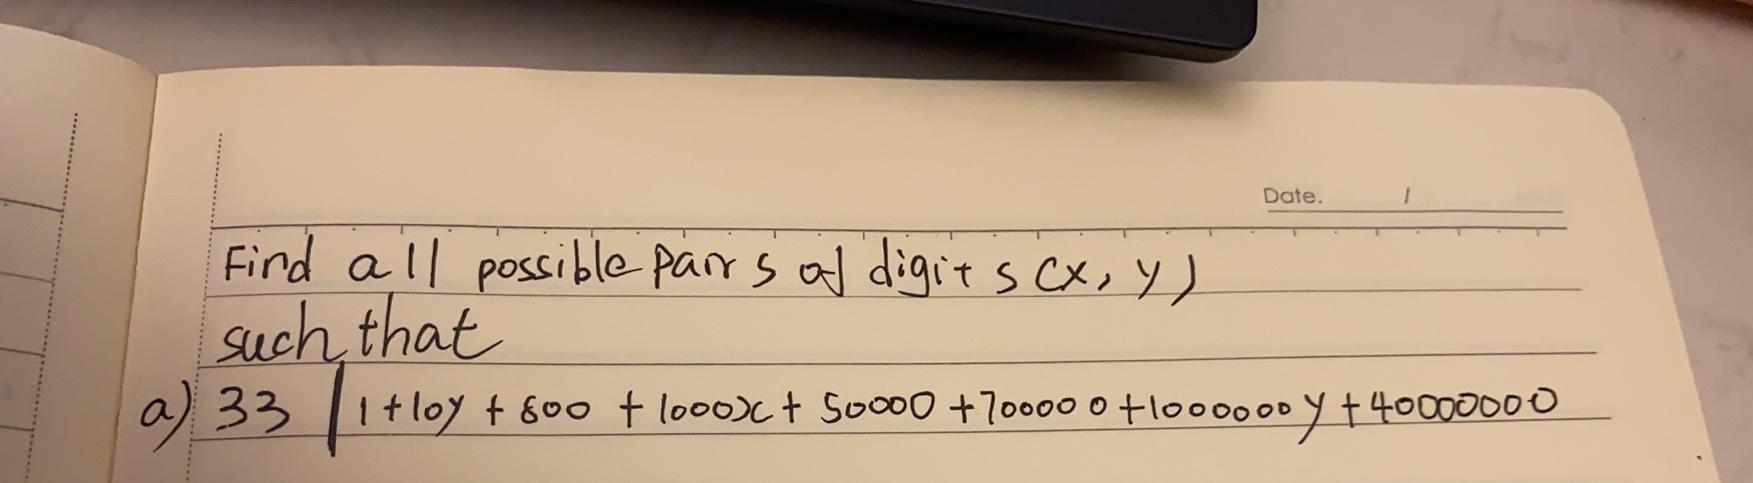 Date. /
Find all possible pairs of digits (x, y)
such that
a) 33 | 1+10y + 600 + 1000x + 50000 + 700000 + 1000000y + 40000000